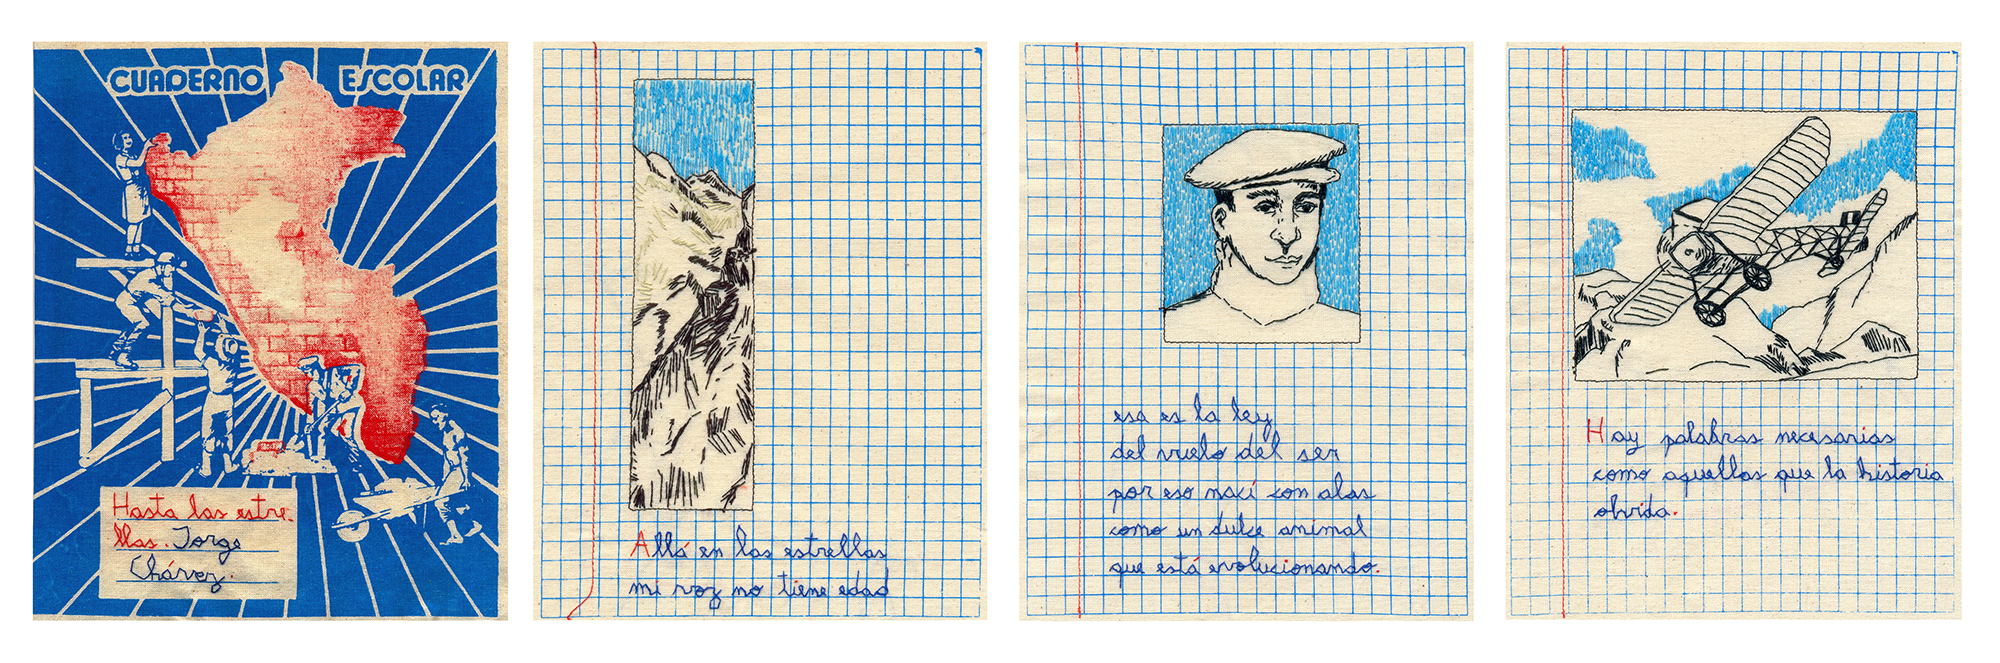 CUADERNO ESCOLAR
Hasta las estre-
llas. Jorge
Chávez.
Allá en las estrellas
mi voz no tiene edad
esa es la ley
del vuelo del ser
por eso nací con alas
como un dulce animal
que está evolucionando.
Hay palabras necesarias
como aquellas que la historia
olvida.